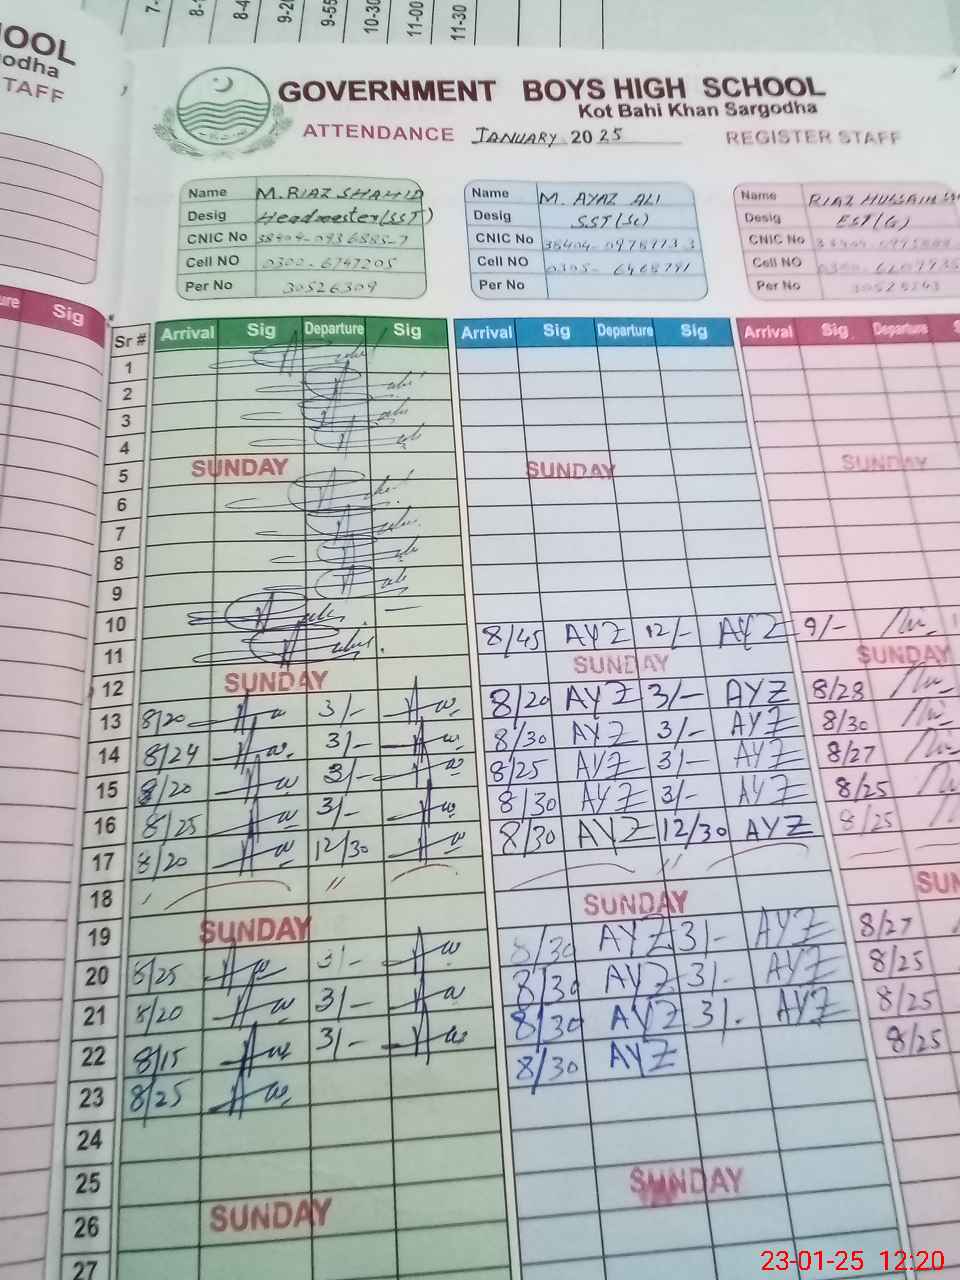 8-1
7-4
9-20
9-55
10-30
11-00
11-30
HOOL
godha
TAFF
GOVERNMENT BOYS HIGH SCHOOL
Kot Bahi Khan Sargodha
ATTENDANCE JANUARY 2025 REGISTER STAFF
Name M. RIAZ SHAHID Name M. AYAZ ALI Name RIAZ HUSSAIN
Desig Headmester(SST) Desig SST(Sc) Desig EST(G)
CNIC No CNIC No CNIC No
Cell NO 0300-6747205 Cell NO 0305- Cell NO
Per No 30526309 Per No Per No
ure Sig
Sr # Arrival Sig Departure Sig Arrival Sig Departure Sig Arrival Sig Departure S
1
2
3
4
5 SUNDAY SUNDAY SUNDAY
6
7
8
9
10 8/45 AYZ 12/- AYZ 9/-
11 SUNDAY SUNDAY
12 SUNDAY 8/20 AYZ 3/- AYZ 8/28
13 8/20 3/- 8/30 AYZ 3/- AYZ 8/30
14 8/24 3/- 8/25 AYZ 3/- AYZ 8/27
15 8/20 3/- 8/30 AYZ 3/- AYZ 8/25
16 8/25 3/- 8/30 AYZ 12/30 AYZ 8/25
17 8/20 12/30 "
18 " SUNDAY SUN
19 SUNDAY 8/30 AYZ 3/- AYZ 8/27
20 8/25 3/- 8/30 AYZ 3/- AYZ 8/25
21 8/20 3/- 8/30 AYZ 3/- AYZ 8/25
22 8/15 3/- 8/30 AYZ 8/25
23 8/25
24
25 SUNDAY
26 SUNDAY
27
23-01-25 12:20